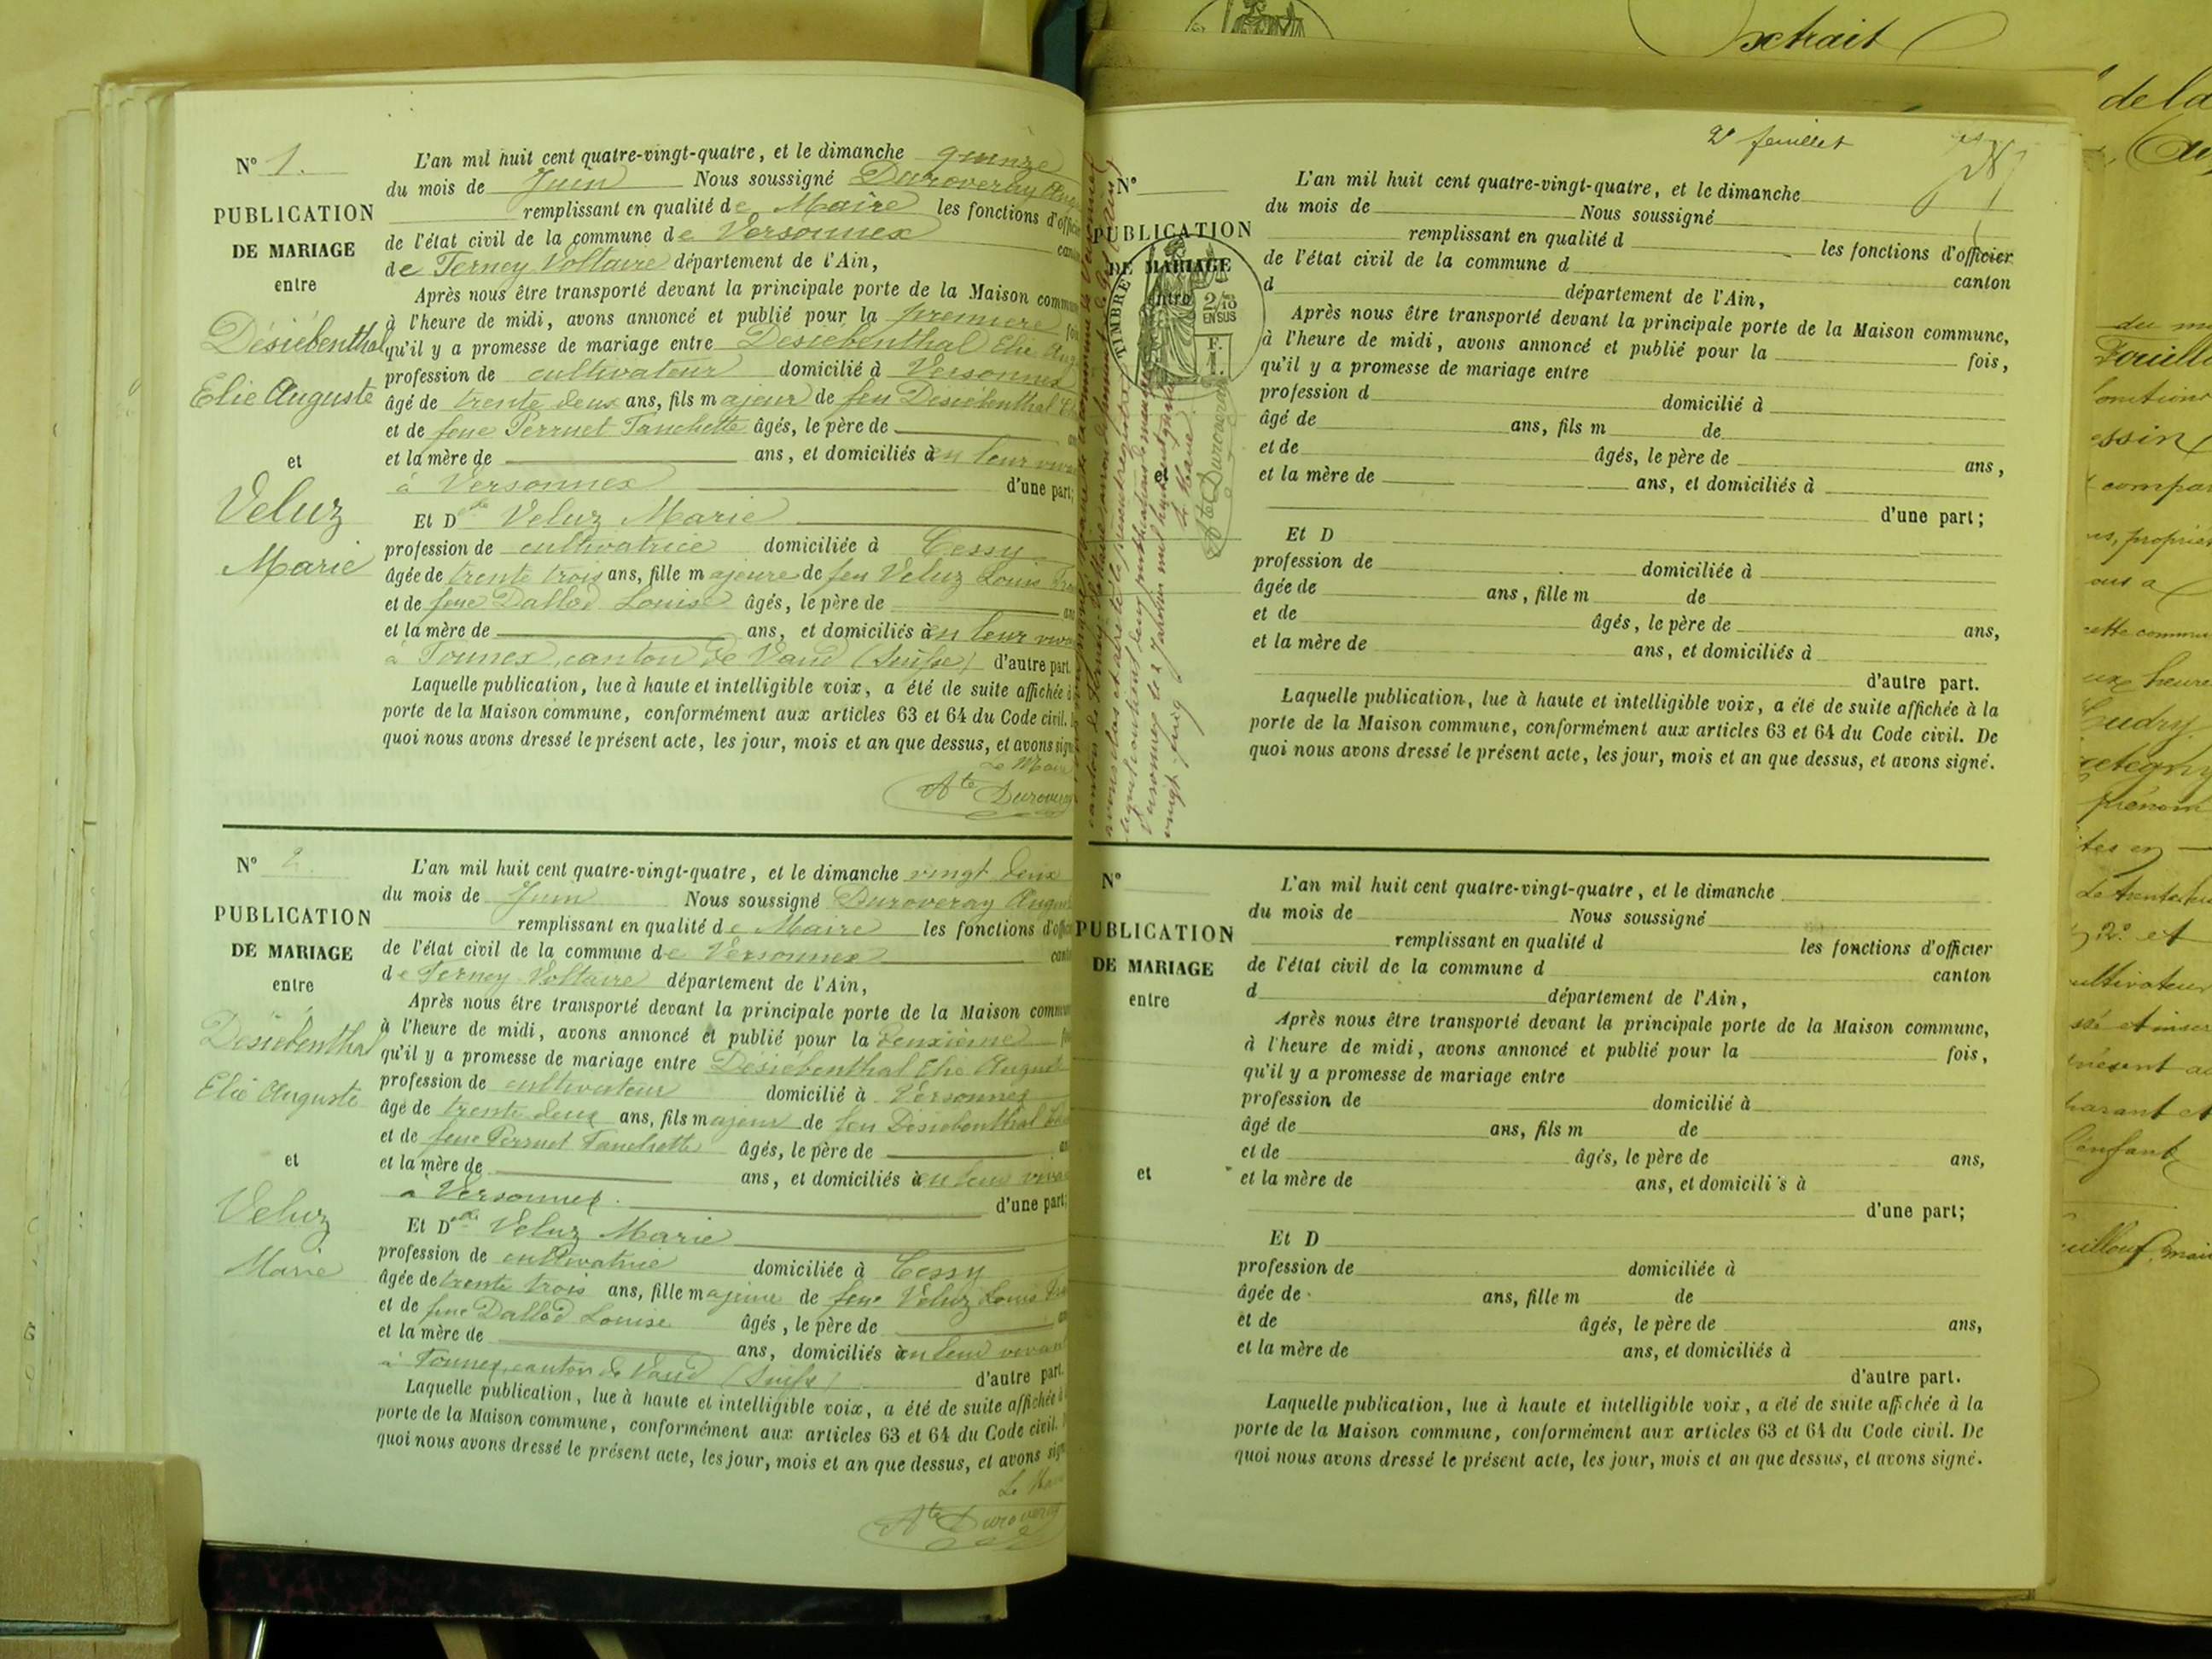 N° 1.
PUBLICATION
DE MARIAGE
entre
Désiébenthal
Elie Auguste
et
Veluz
Marie
L'an mil huit cent quatre-vingt-quatre, et le dimanche quinze
du mois de Juin Nous soussigné Duroveray
remplissant en qualité de Maire les fonctions d'officier
de l'état civil de la commune de Versonnex canton
de Ferney Voltaire département de l'Ain,
Après nous être transporté devant la principale porte de la Maison commune
à l'heure de midi, avons annoncé et publié pour la première fois
qu'il y a promesse de mariage entre Désiébenthal Elie Aug
profession de cultivateur domicilié à Versonnex
âgé de trente deux ans, fils majeur de feu Désiébenthal
et de feue Perruet Fanchette âgés, le père de
et la mère de ans, et domiciliés à en leur
à Versonnex d'une part;
Et Delle Veluz Marie
profession de cultivatrice domiciliée à Cessy
âgée de trente trois ans, fille majeure de feu Veluz Louis
et de feue Dallod Louise âgés, le père de
et la mère de ans, et domiciliés à en leur
à Founex, canton de Vaud (Suisse) d'autre part.
Laquelle publication, lue à haute et intelligible voix, a été de suite affichée à
porte de la Maison commune, conformément aux articles 63 et 64 du Code civil.
quoi nous avons dressé le présent acte, les jour, mois et an que dessus, et avons
Le Maire
Ate Duroveray
N° 2.
PUBLICATION
DE MARIAGE
entre
Désiébenthal
Elie Auguste
et
Veluz
Marie
L'an mil huit cent quatre-vingt-quatre, et le dimanche vingt deux
du mois de Juin Nous soussigné Duroveray August
remplissant en qualité de Maire les fonctions d'officier
de l'état civil de la commune de Versonnex canton
de Ferney Voltaire département de l'Ain,
Après nous être transporté devant la principale porte de la Maison commune
à l'heure de midi, avons annoncé et publié pour la deuxième
qu'il y a promesse de mariage entre Désiébenthal Elie August
profession de cultivateur domicilié à Versonnex
âgé de trente deux ans, fils majeur de feu Désiébenthal
et de feue Perruet Fanchette âgés, le père de
et la mère de ans, et domiciliés à en leur vivant
à Versonnex. d'une part;
Et Delle Veluz Marie
profession de cultivatrice domiciliée à Cessy
âgée de trente trois ans, fille majeure de feue Veluz Louis
et de feue Dallod Louise âgés, le père de
et la mère de ans, domiciliés à en leur vivant
à Founex, canton de Vaud (Suisse) d'autre part.
Laquelle publication, lue à haute et intelligible voix, a été de suite affichée à
porte de la Maison commune, conformément aux articles 63 et 64 du Code civil.
quoi nous avons dressé le présent acte, les jour, mois et an que dessus, et avons
Le Maire
Ate Duroveray
2e feuillet
N°
PUBLICATION
DE MARIAGE
entre
et
TIMBRE
2/10
EN SUS
F.
1.
Ate Duroveray
L'an mil huit cent quatre-vingt-quatre, et le dimanche
du mois de Nous soussigné
remplissant en qualité d les fonctions d'officier
de l'état civil de la commune d canton
d département de l'Ain,
Après nous être transporté devant la principale porte de la Maison commune,
à l'heure de midi, avons annoncé et publié pour la fois,
qu'il y a promesse de mariage entre
profession d domicilié à
âgé de ans, fils m de
et de âgés, le père de ans,
et la mère de ans, et domiciliés à
d'une part;
Et D
profession de domiciliée à
âgée de ans, fille m de
et de âgés, le père de ans,
et la mère de ans, et domiciliés à
d'autre part.
Laquelle publication, lue à haute et intelligible voix, a été de suite affichée à la
porte de la Maison commune, conformément aux articles 63 et 64 du Code civil. De
quoi nous avons dressé le présent acte, les jour, mois et an que dessus, et avons signé.
N°
PUBLICATION
DE MARIAGE
entre
et
L'an mil huit cent quatre-vingt-quatre, et le dimanche
du mois de Nous soussigné
remplissant en qualité d les fonctions d'officier
de l'état civil de la commune d canton
d département de l'Ain,
Après nous être transporté devant la principale porte de la Maison commune,
à l'heure de midi, avons annoncé et publié pour la fois,
qu'il y a promesse de mariage entre
profession de domicilié à
âgé de ans, fils m de
et de âgés, le père de ans,
et la mère de ans, et domicili's à
d'une part;
Et D
profession de domiciliée à
âgée de ans, fille m de
et de âgés, le père de ans,
et la mère de ans, et domiciliés à
d'autre part.
Laquelle publication, lue à haute et intelligible voix, a été de suite affichée à la
porte de la Maison commune, conformément aux articles 63 et 64 du Code civil. De
quoi nous avons dressé le présent acte, les jour, mois et an que dessus, et avons signé.
Extrait
de la